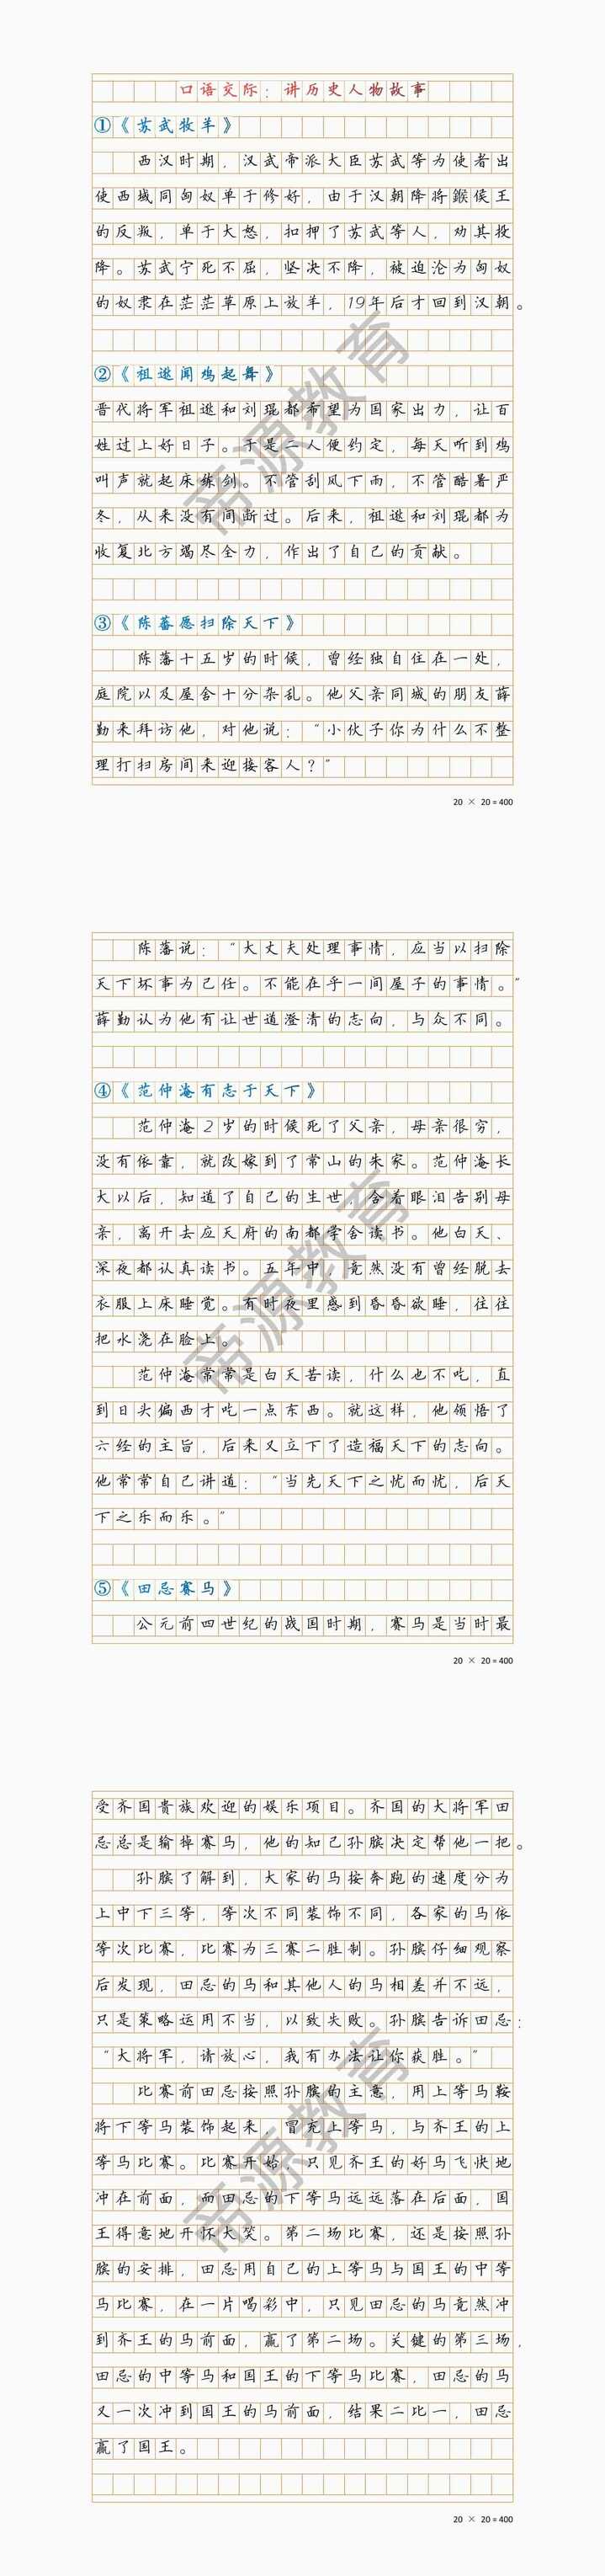 口语交际：讲历史人物故事
①《苏武牧羊》
西汉时期，汉武帝派大臣苏武等为使者出
使西域同匈奴单于修好，由于汉朝降将緱侯王
的反叛，单于大怒，扣押了苏武等人，劝其投
降。苏武宁死不屈，坚决不降，被迫沦为匈奴
的奴隶在茫茫草原上放羊，19年后才回到汉朝。
②《祖逖闻鸡起舞》
晋代将军祖逖和刘琨都希望为国家出力，让百
姓过上好日子。于是二人便约定，每天听到鸡
叫声就起床练剑。不管刮风下雨，不管酷暑严
冬，从来没有间断过。后来，祖逖和刘琨都为
收复北方竭尽全力，作出了自己的贡献。
③《陈蕃愿扫除天下》
陈藩十五岁的时候，曾经独自住在一处，
庭院以及屋舍十分杂乱。他父亲同城的朋友薛
勤来拜访他，对他说：“小伙子你为什么不整
理打扫房间来迎接客人？”
20 × 20 = 400
陈藩说：“大丈夫处理事情，应当以扫除
天下坏事为己任。不能在乎一间屋子的事情。”
薛勤认为他有让世道澄清的志向，与众不同。
④《范仲淹有志于天下》
范仲淹2岁的时候死了父亲，母亲很穷，
没有依靠，就改嫁到了常山的朱家。范仲淹长
大以后，知道了自己的生世，含着眼泪告别母
亲，离开去应天府的南都学舍读书。他白天、
深夜都认真读书。五年中，竟然没有曾经脱去
衣服上床睡觉。有时夜里感到昏昏欲睡，往往
把水浇在脸上。
范仲淹常常是白天苦读，什么也不吃，直
到日头偏西才吃一点东西。就这样，他领悟了
六经的主旨，后来又立下了造福天下的志向。
他常常自己讲道：“当先天下之忧而忧，后天
下之乐而乐。”
⑤《田忌赛马》
公元前四世纪的战国时期，赛马是当时最
20 × 20 = 400
受齐国贵族欢迎的娱乐项目。齐国的大将军田
忌总是输掉赛马，他的知己孙膑决定帮他一把。
孙膑了解到，大家的马按奔跑的速度分为
上中下三等，等次不同装饰不同，各家的马依
等次比赛，比赛为三赛二胜制。孙膑仔细观察
后发现，田忌的马和其他人的马相差并不远，
只是策略运用不当，以致失败。孙膑告诉田忌：
“大将军，请放心，我有办法让你获胜。”
比赛前田忌按照孙膑的主意，用上等马鞍
将下等马装饰起来，冒充上等马，与齐王的上
等马比赛。比赛开始，只见齐王的好马飞快地
冲在前面，而田忌的下等马远远落在后面，国
王得意地开怀大笑。第二场比赛，还是按照孙
膑的安排，田忌用自己的上等马与国王的中等
马比赛，在一片喝彩中，只见田忌的马竟然冲
到齐王的马前面，赢了第二场。关键的第三场，
田忌的中等马和国王的下等马比赛，田忌的马
又一次冲到国王的马前面，结果二比一，田忌
赢了国王。
20 × 20 = 400
帝源教育
帝源教育
帝源教育